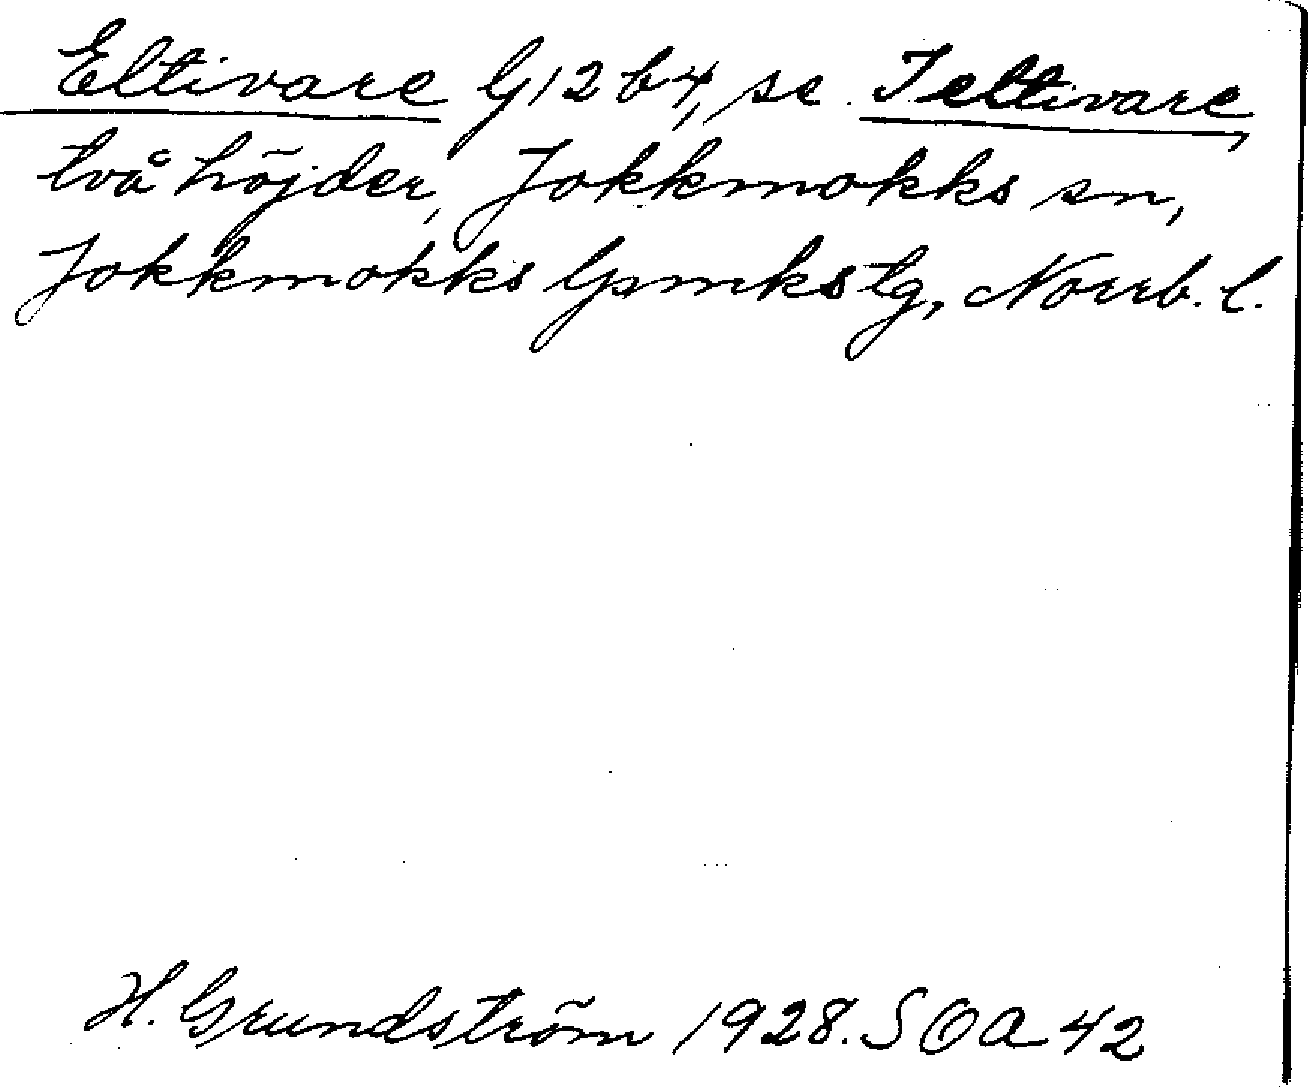 Eltivare G12b4, se Jeltivare,
två höjder, Jokkmokks sn,
Jokkmokks lpmkstg, Norrb. l.
H. Grundström 1928. SOA 42